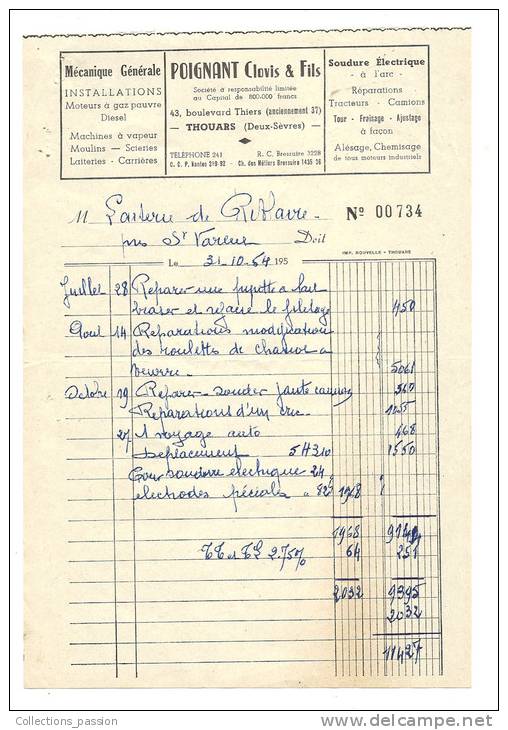 Mécanique Générale
INSTALLATIONS
Moteurs à gaz pauvre
Diesel
Machines à vapeur
Moulins — Scieries
Laiteries - Carrières
POIGNANT Clovis & Fils
Société à responsabilité limitée
au Capital de 800.000 francs
43, boulevard Thiers (anciennement 37)
— THOUARS (Deux-Sèvres) —
TÉLÉPHONE 241 R. C. Bressuire 3228
C. C. P. Nantes 319-92 - Ch. des Métiers Bressuire 1435 36
Soudure Électrique
- à l'arc -
Réparations
Tracteurs - Camions
Tour - Fraisage - Ajustage
à façon
Alésage, Chemisage
de tous moteurs industriels
M Laiterie de Riblaire
Nº 00734
près St Varent Doit
IMP. NOUVELLE - THOUARS
Le 31-10-54 195
Juillet 28 Réparer une pipette a lait
braser et refaire le filetage 450
Aout 14 Réparations modification
des roulettes de chariot a
beurre 5061
Octobre 19 Réparer - souder jante camion 560
Réparations d'un cric 1055
27 1 voyage auto 468
Déplacement 5H 310 1550
Pour soudure electrique 24
electrodes spéciales a 82 1968
1968 9144
TT et TL 2.75% 64 251
2032 9395
2032
11427
Collections_passion
www.delcampe.net